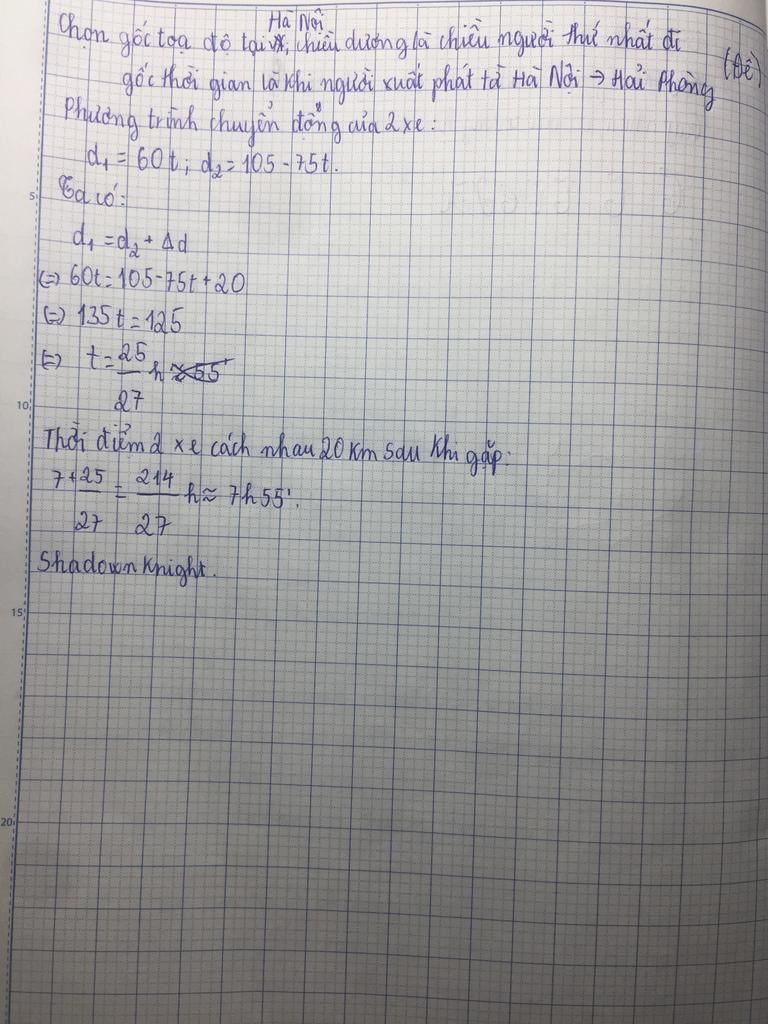 Hà Nội
Chọn gốc tọa độ tại, chiều dương là chiều người thứ nhất đi
(Đề)
gốc thời gian là khi người xuất phát từ Hà Nội → Hải Phòng
Phương trình chuyển động của 2 xe:
d₁ = 60t; d₂ = 105 - 75t.
5
Ta có:
d₁ = d₂ + Δd
(=) 60t = 105 - 75t + 20
(=) 135t = 125
(=) t = 25/27 h ≈ 55'
10
Thời điểm 2 xe cách nhau 20 km sau khi gặp:
7 + 25/27 = 214/27 h ≈ 7h55'.
Shadown Knight.
15
20